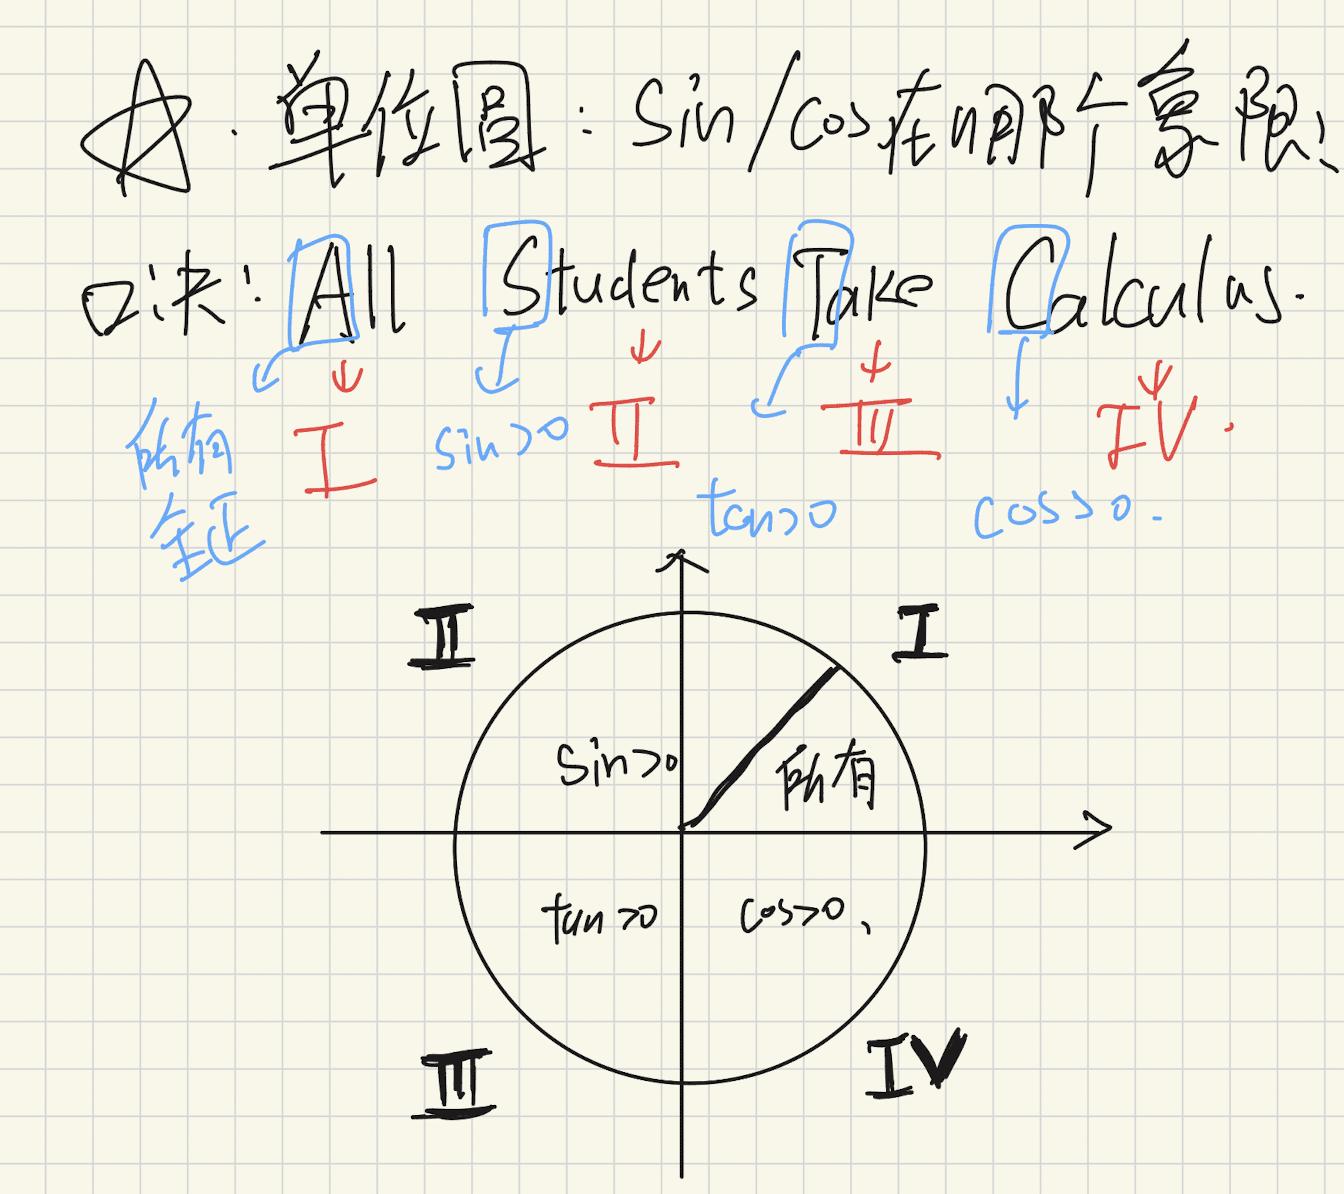 ☆. 单位圆: Sin/cos在哪个象限!
口诀: All Students Take Calculus.
所有 I sin>0 II III IV.
全正 tan>0 cos>0.
II I
Sin>0 所有
tan>0 cos>0、
III IV